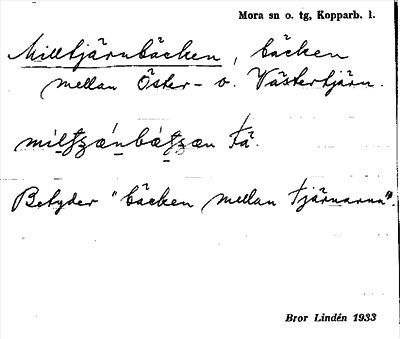 Mora sn o. tg, Kopparb. l.
Milltjärnbäcken, bäcken
mellan Öster- o. Västertjärn.
tä.
Betyder "bäcken mellan tjärnarna".
Bror Lindén 1933